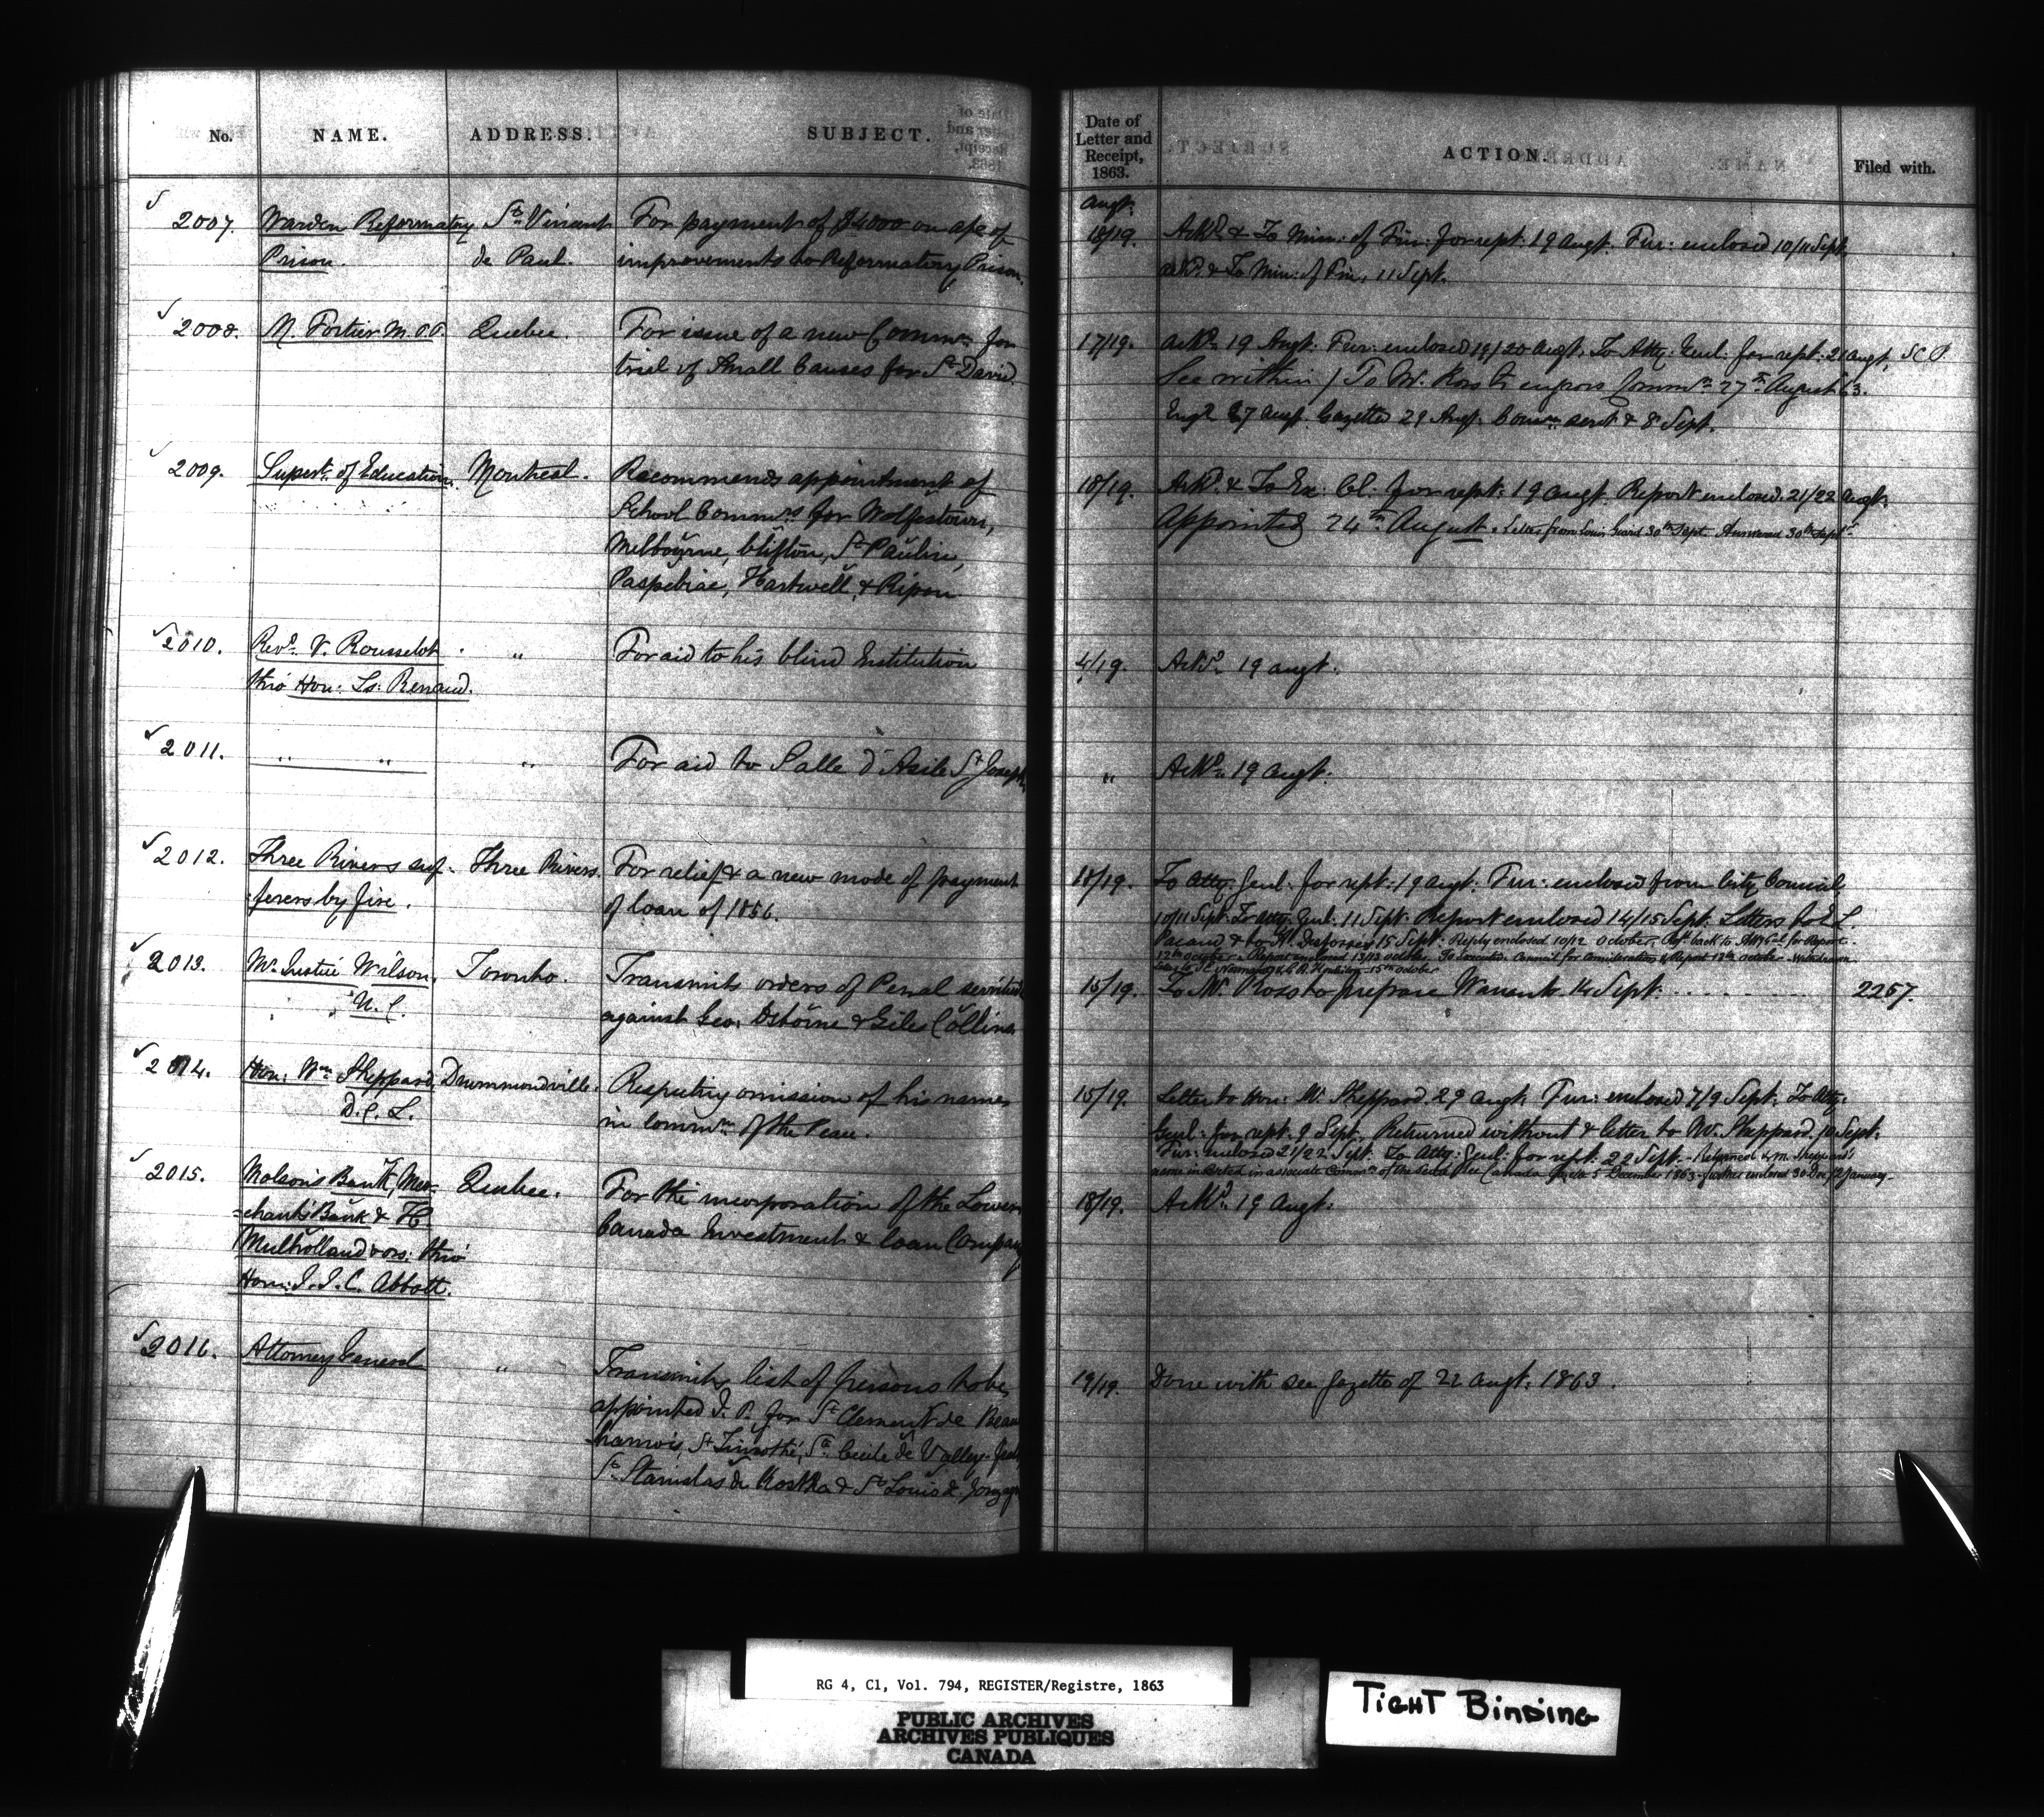 No. NAME. ADDRESS. SUBJECT. Date of Letter and Receipt, 1863. ACTION. Filed with.
Augt.
2007. Warden Reformatory St. Vincent For payment of $4000 on a/c of 18/19. Ackd. & To Min: of Fin: for rept: 19 Augt. Fur: enclosed 10/11 Sept.
Prison. de Paul. improvements to Reformatory Prison. ackd. & To Min: of Fin. 11 Sept.
2008. M. Fortier M.P.P. Quebec. For issue of a new Commn. for 17/19. Ackd. 19 Augt. Fur: enclosed 19/20 Augt. To Atty: Genl: for rept: 21 Augt.
trial of Small Causes for St. David. See within / To Mr. Ross to engross Commn. 27th August 63.
Engd. 27 Augt. Gazetted 29 Augt. Commn. sent & 8 Sept.
2009. Supert. of Education. Montreal. Recommends appointment of 18/19. Ackd. & To Ex: Cl. for rept: 19 Augt. Report enclosed 21/22 Augt.
School Commrs. for Wolfestown, Appointed 24th August. Letter from Louis Guard 30th Sept. Answered 30th Sept.
Melbourne, Clifton, St. Paulin,
Paspebiac, Hartwell, & Ripon
2010. Revd. V. Rousselot " For aid to his blind Institution 4/19. Ackd. 19 Augt.
thro' Hon: Ls: Renaud.
2011. " " " For aid to Salle d'Asile St. Joseph. " Ackd. 19 Augt.
2012. Three Rivers suf- Three Rivers. For relief & a new mode of payment 18/19. To Atty: Genl: for rept: 19 Augt: Fur: enclosed from City Council,
-ferers by fire. of loan of 1856. 10/11 Sept. To Atty: Genl. 11 Sept. Report enclosed 14/15 Sept. Letters to E. L.
Pacaud & to Mr. Desfosses 15 Sept. Reply enclosed 10/12 October. Refd. back to Atty Gl. for Report.
12th October. Report enclosed 13/13 October. To Executive Council for consideration & Report 12th October. Withdrawn
15th October
2013. Mr. Justice Wilson, Toronto. Transmits orders of Penal servitude 15/19. To Mr. Ross to prepare Warrants 14 Sept. 2257.
U. C. against Geo: Osborne & Giles Collins
2014. Hon: Wm. Sheppard, Drummondville. Respecting omission of his name 15/19. Letter to Hon: W. Sheppard 29 Augt. Fur: enclosed 7/9 Sept: To Atty:
D.C.L. in Commn. of the Peace. Genl: for rept. 9 Sept. Returned without & letter to Mr. Sheppard. 10 Sept.
Fur: enclosed 21/22 Sept. To Atty: Genl: for rept: 22 Sept. Returned & Mr. Sheppard's
name inserted in associate Commn. of the Peace 5 December 1863. further enclosed 30 Dec/2 January.
2015. Molson's Bank, Mer- Quebec. For the incorporation of the Lower 18/19. Ackd. 19 Augt.
-chants' Bank & H Canada Investment & Loan Company
Mulholland & ors: thro'
Hon: J. J. C. Abbott.
2016. Attorney General " Transmits list of persons to be 19/19. Done with see Gazette of 22 Augt: 1863.
appointed J. P. for St. Clement de Beau
harnois, St. Timothé, Ste. Cecile de Valley-field
St. Stanislas de Kostka & St. Louis de Gonzague
RG 4, C1, Vol. 794, REGISTER/Registre, 1863
PUBLIC ARCHIVES
ARCHIVES PUBLIQUES
CANADA
TIGHT BINDING